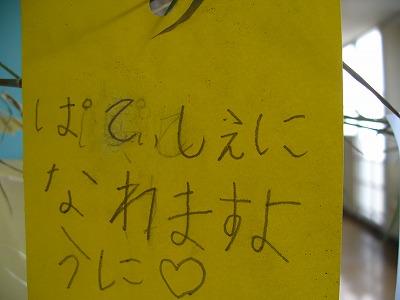 ぱてぃしぇに
なれますよ
うに♡